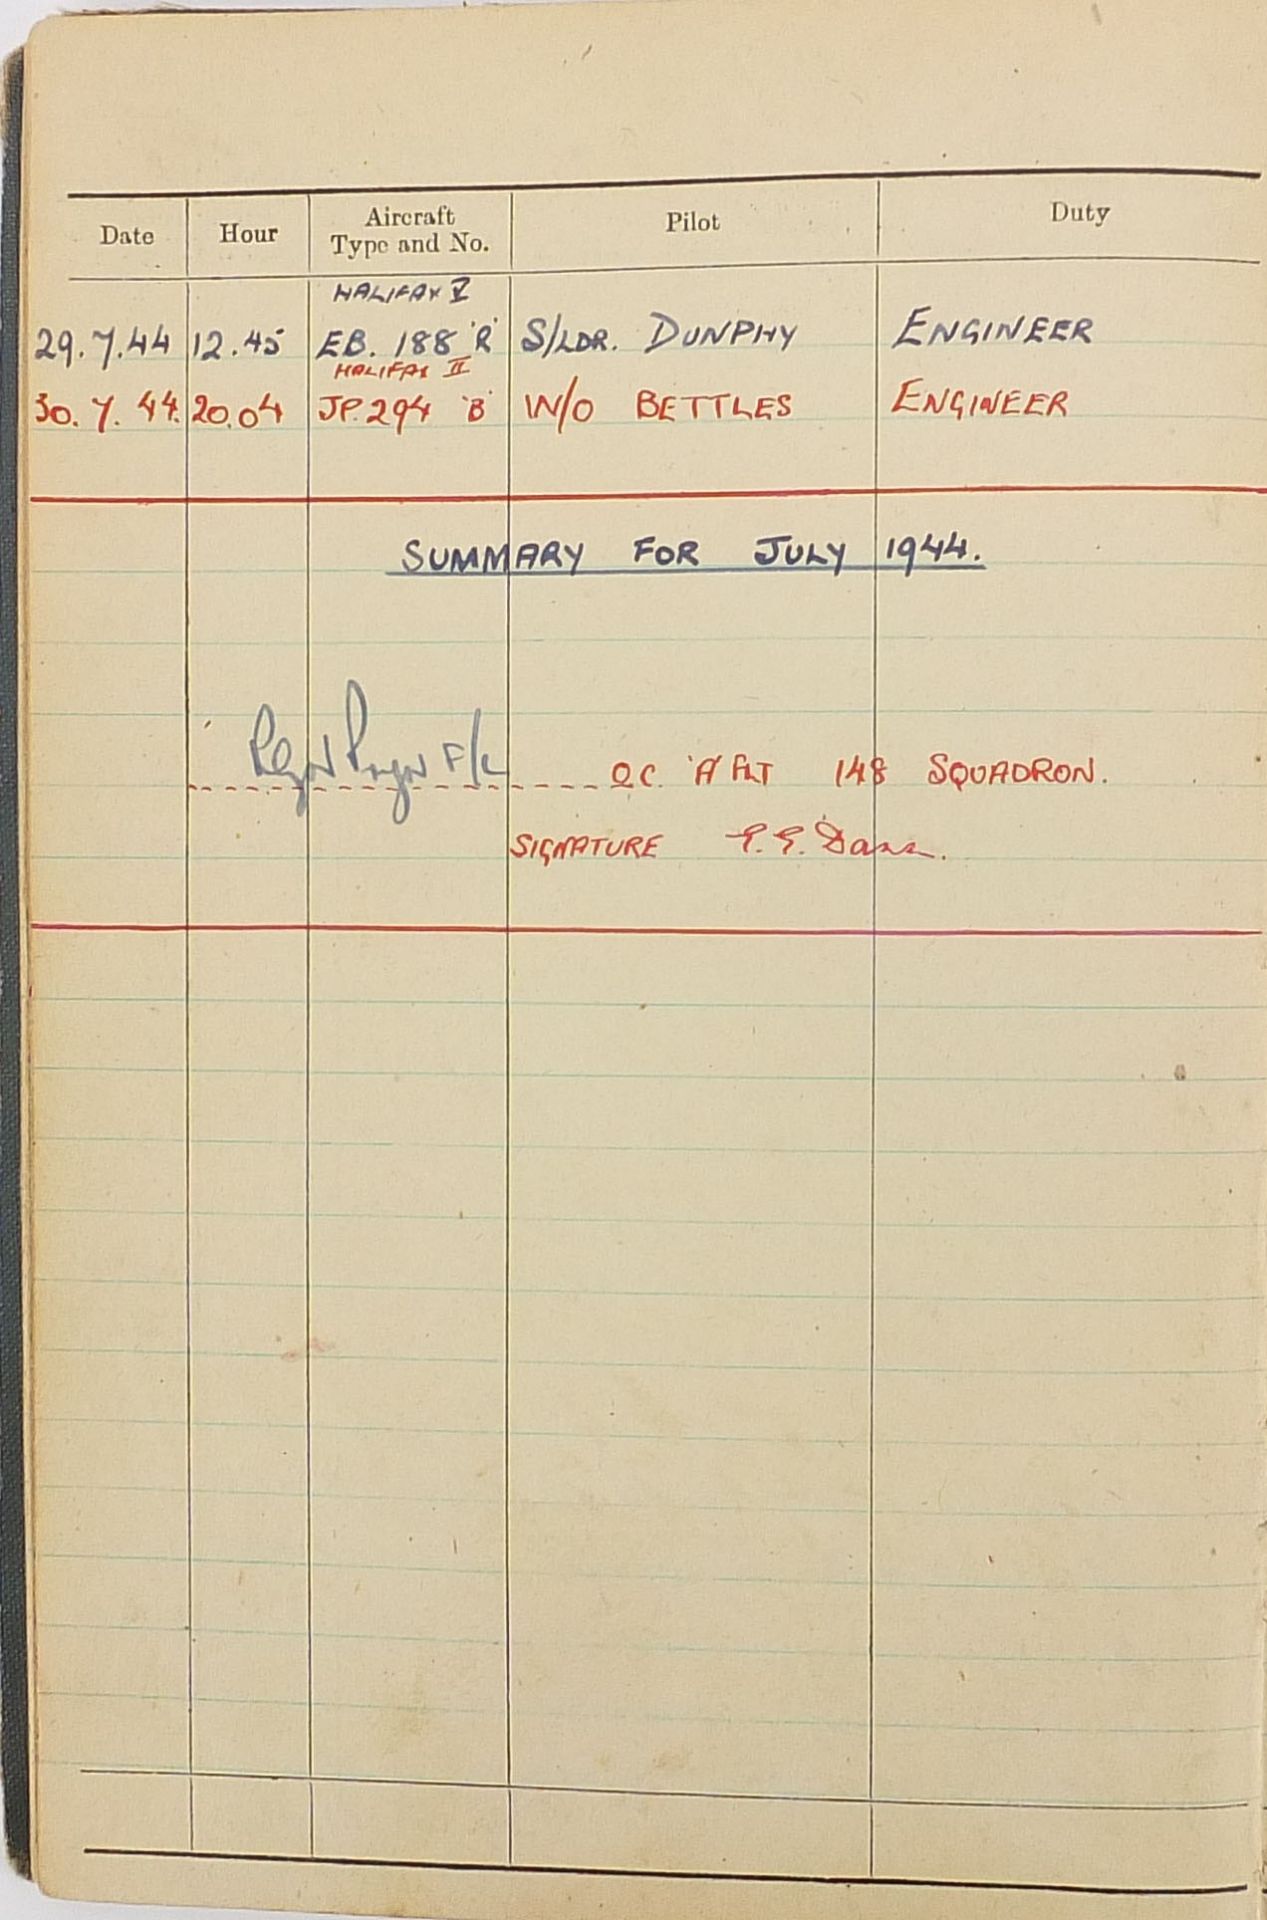 Date Hour Aircraft Type and No. Pilot Duty
HALIFAX V
29.7.44 12.45 EB. 188 'R' S/LDR. DUNPHY ENGINEER
HALIFAX II
30.7.44. 20.04 JP.294 'B' W/O BETTLES ENGINEER
SUMMARY FOR JULY 1944.
F/L O.C. 'A' FLT 148 SQUADRON.
SIGNATURE